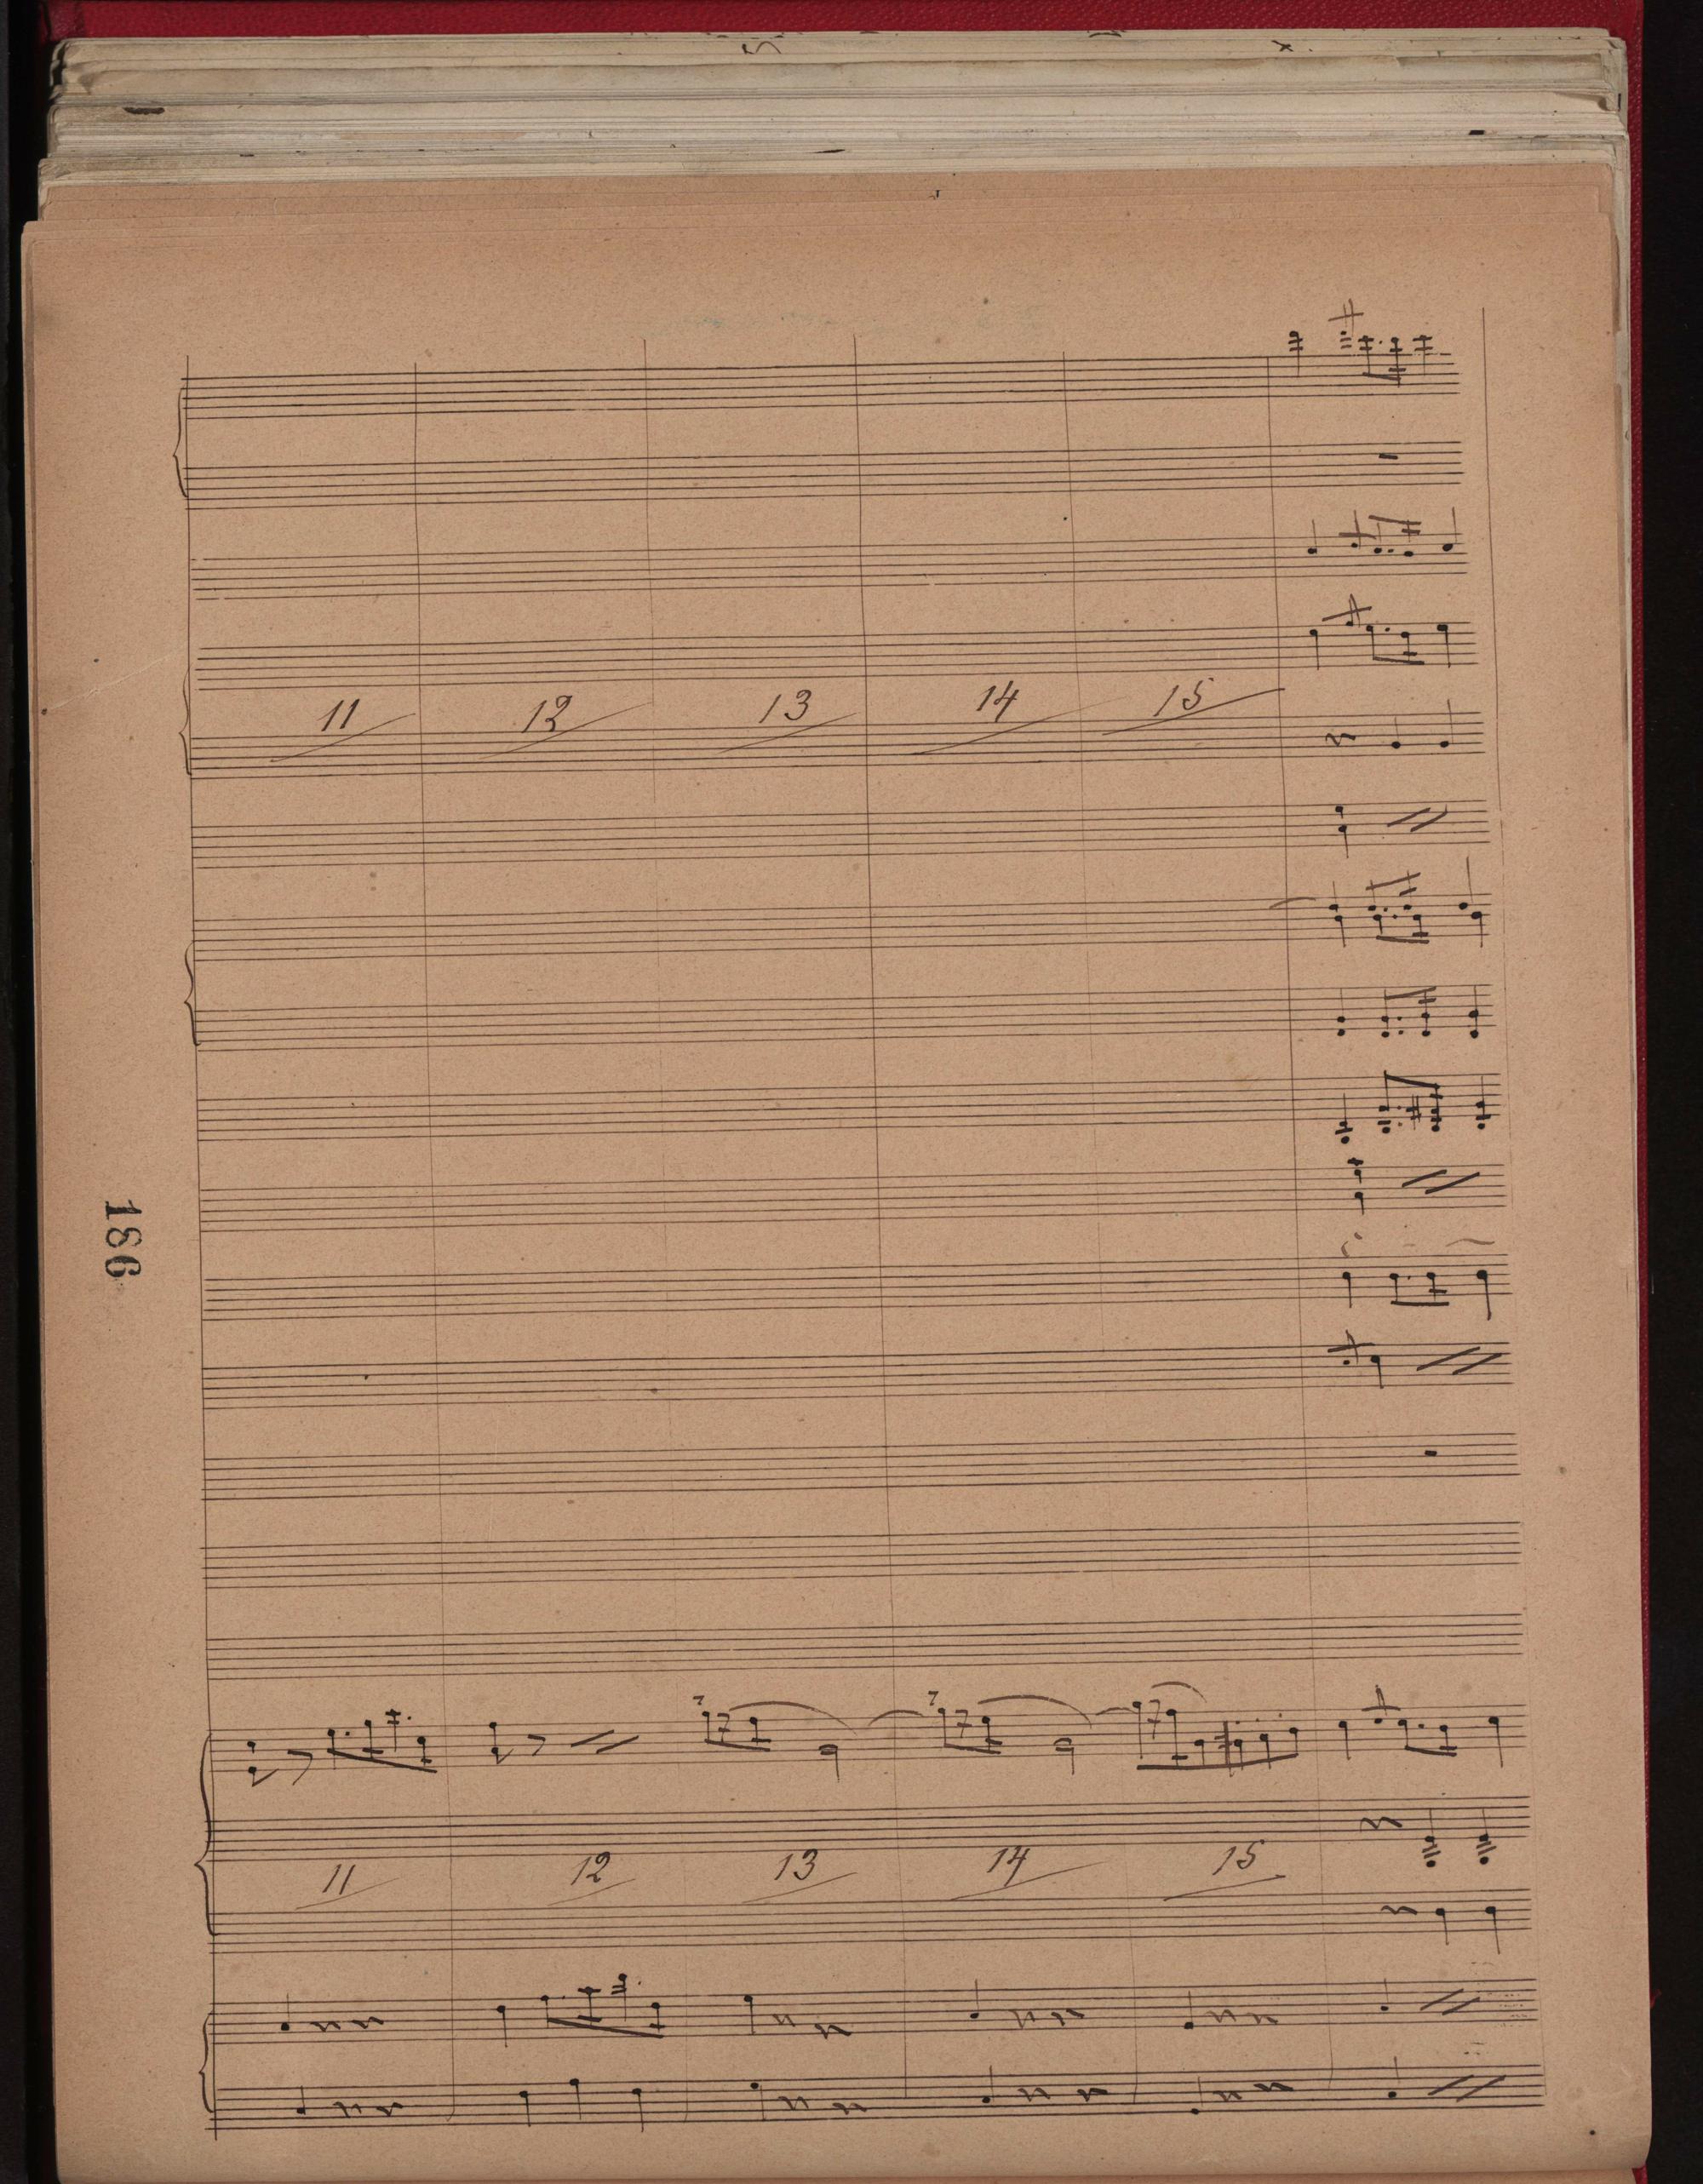 11 12 13 14 15
186
11 12 13 14 15